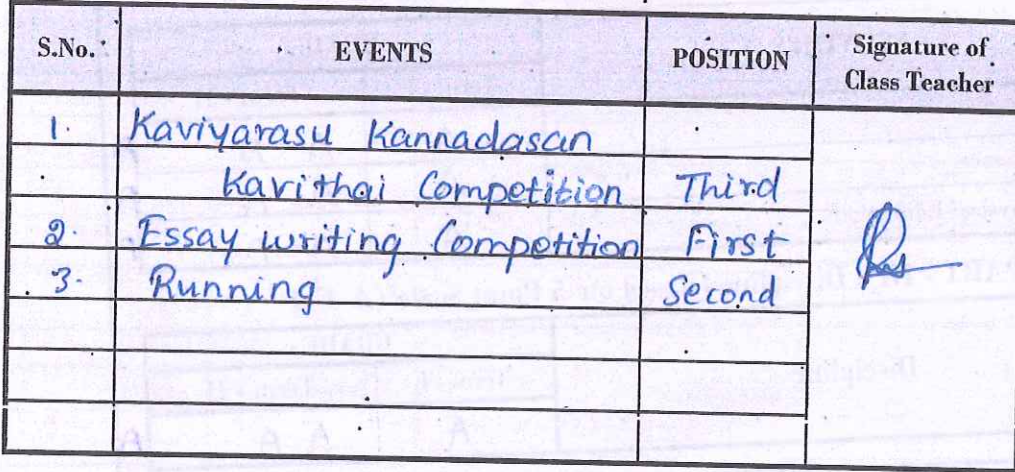 S.No. EVENTS POSITION Signature of Class Teacher
1. Kaviyarasu Kannadasan
Kavithai Competition Third
2. Essay writing Competition First
3. Running Second